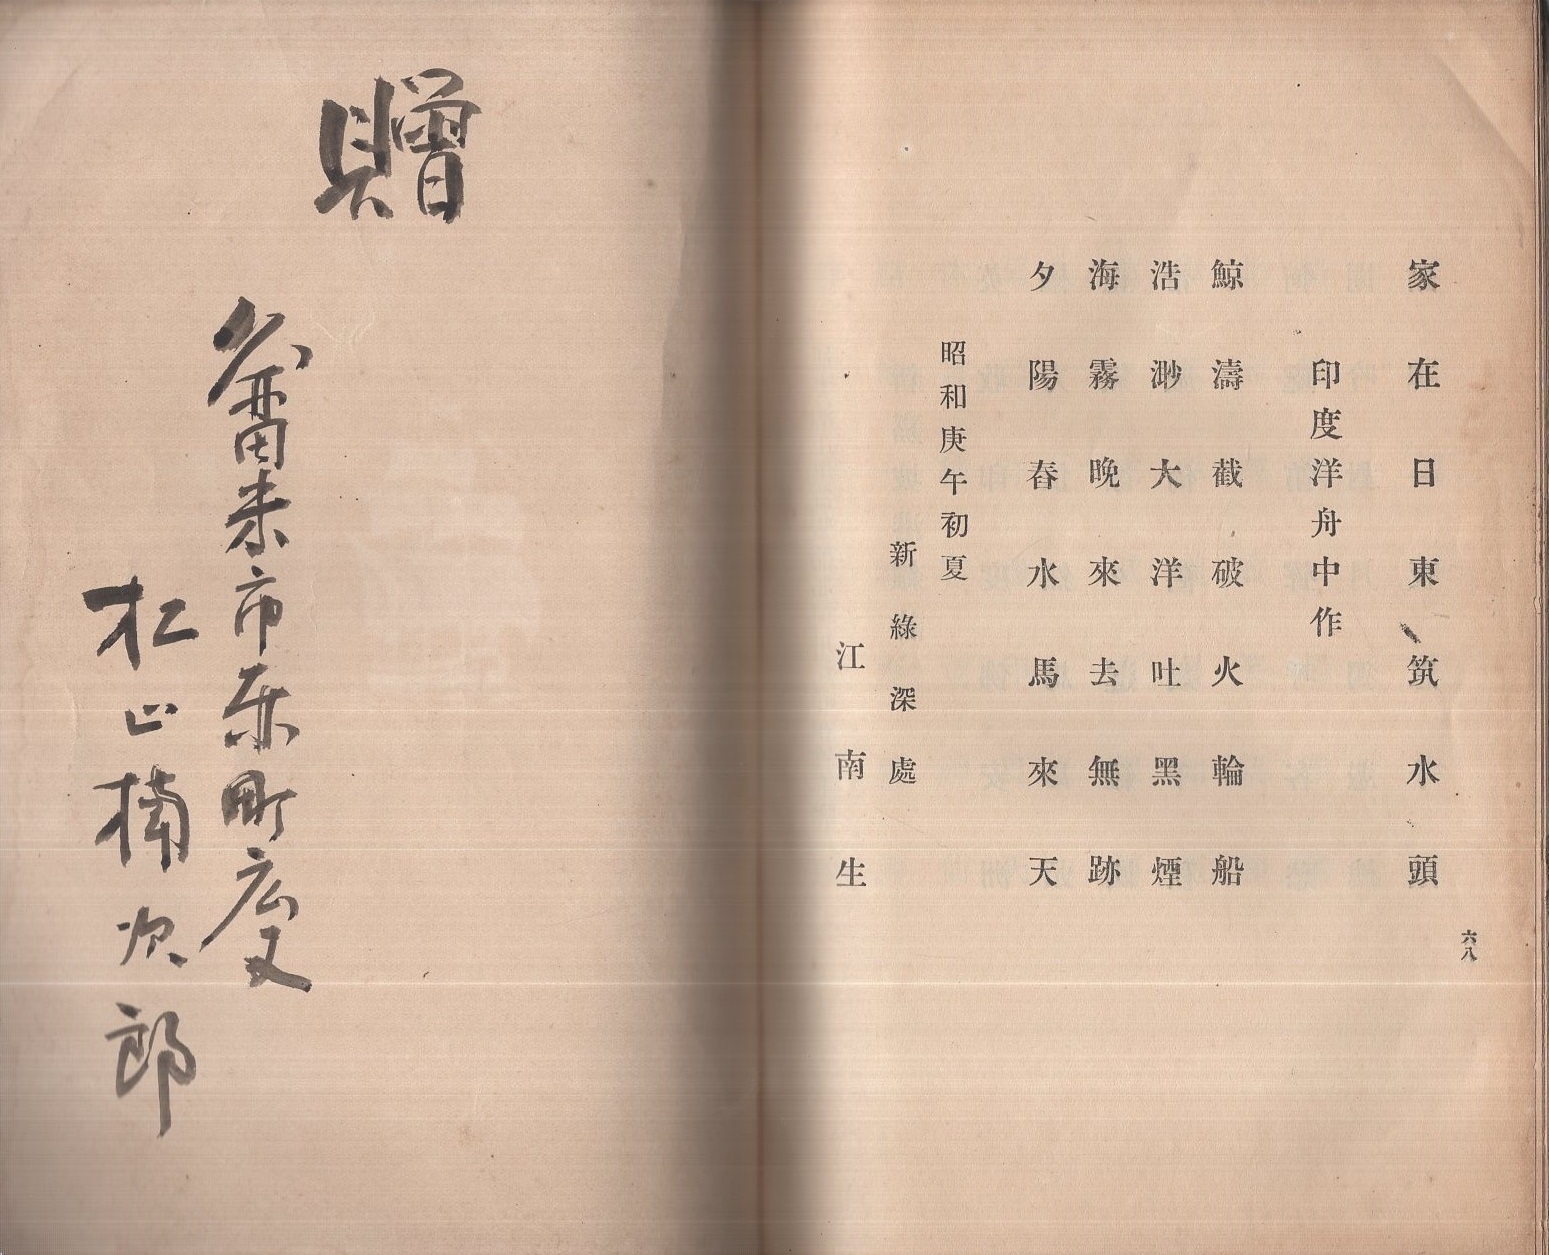 家在日東筑水頭
印度洋舟中作
鯨濤截破火輪船
浩渺大洋吐黑煙
海霧晩來去無跡
夕陽舂水馬來天
昭和庚午初夏
新綠深處
江南生
六八
贈
久留米市町
松山楠次郎